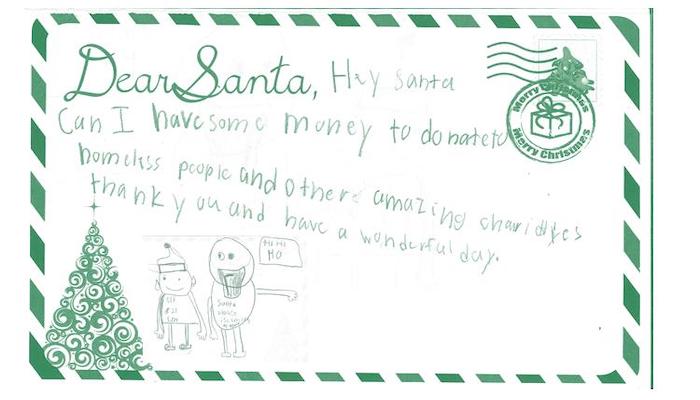 Dear Santa, Hey santa
Merry Christmas
Merry Christmas
Can I have some money to donate to
homeless people and othere amazing charidtyes
thank you and have a wonderful day.
HI HI
HO
Santa